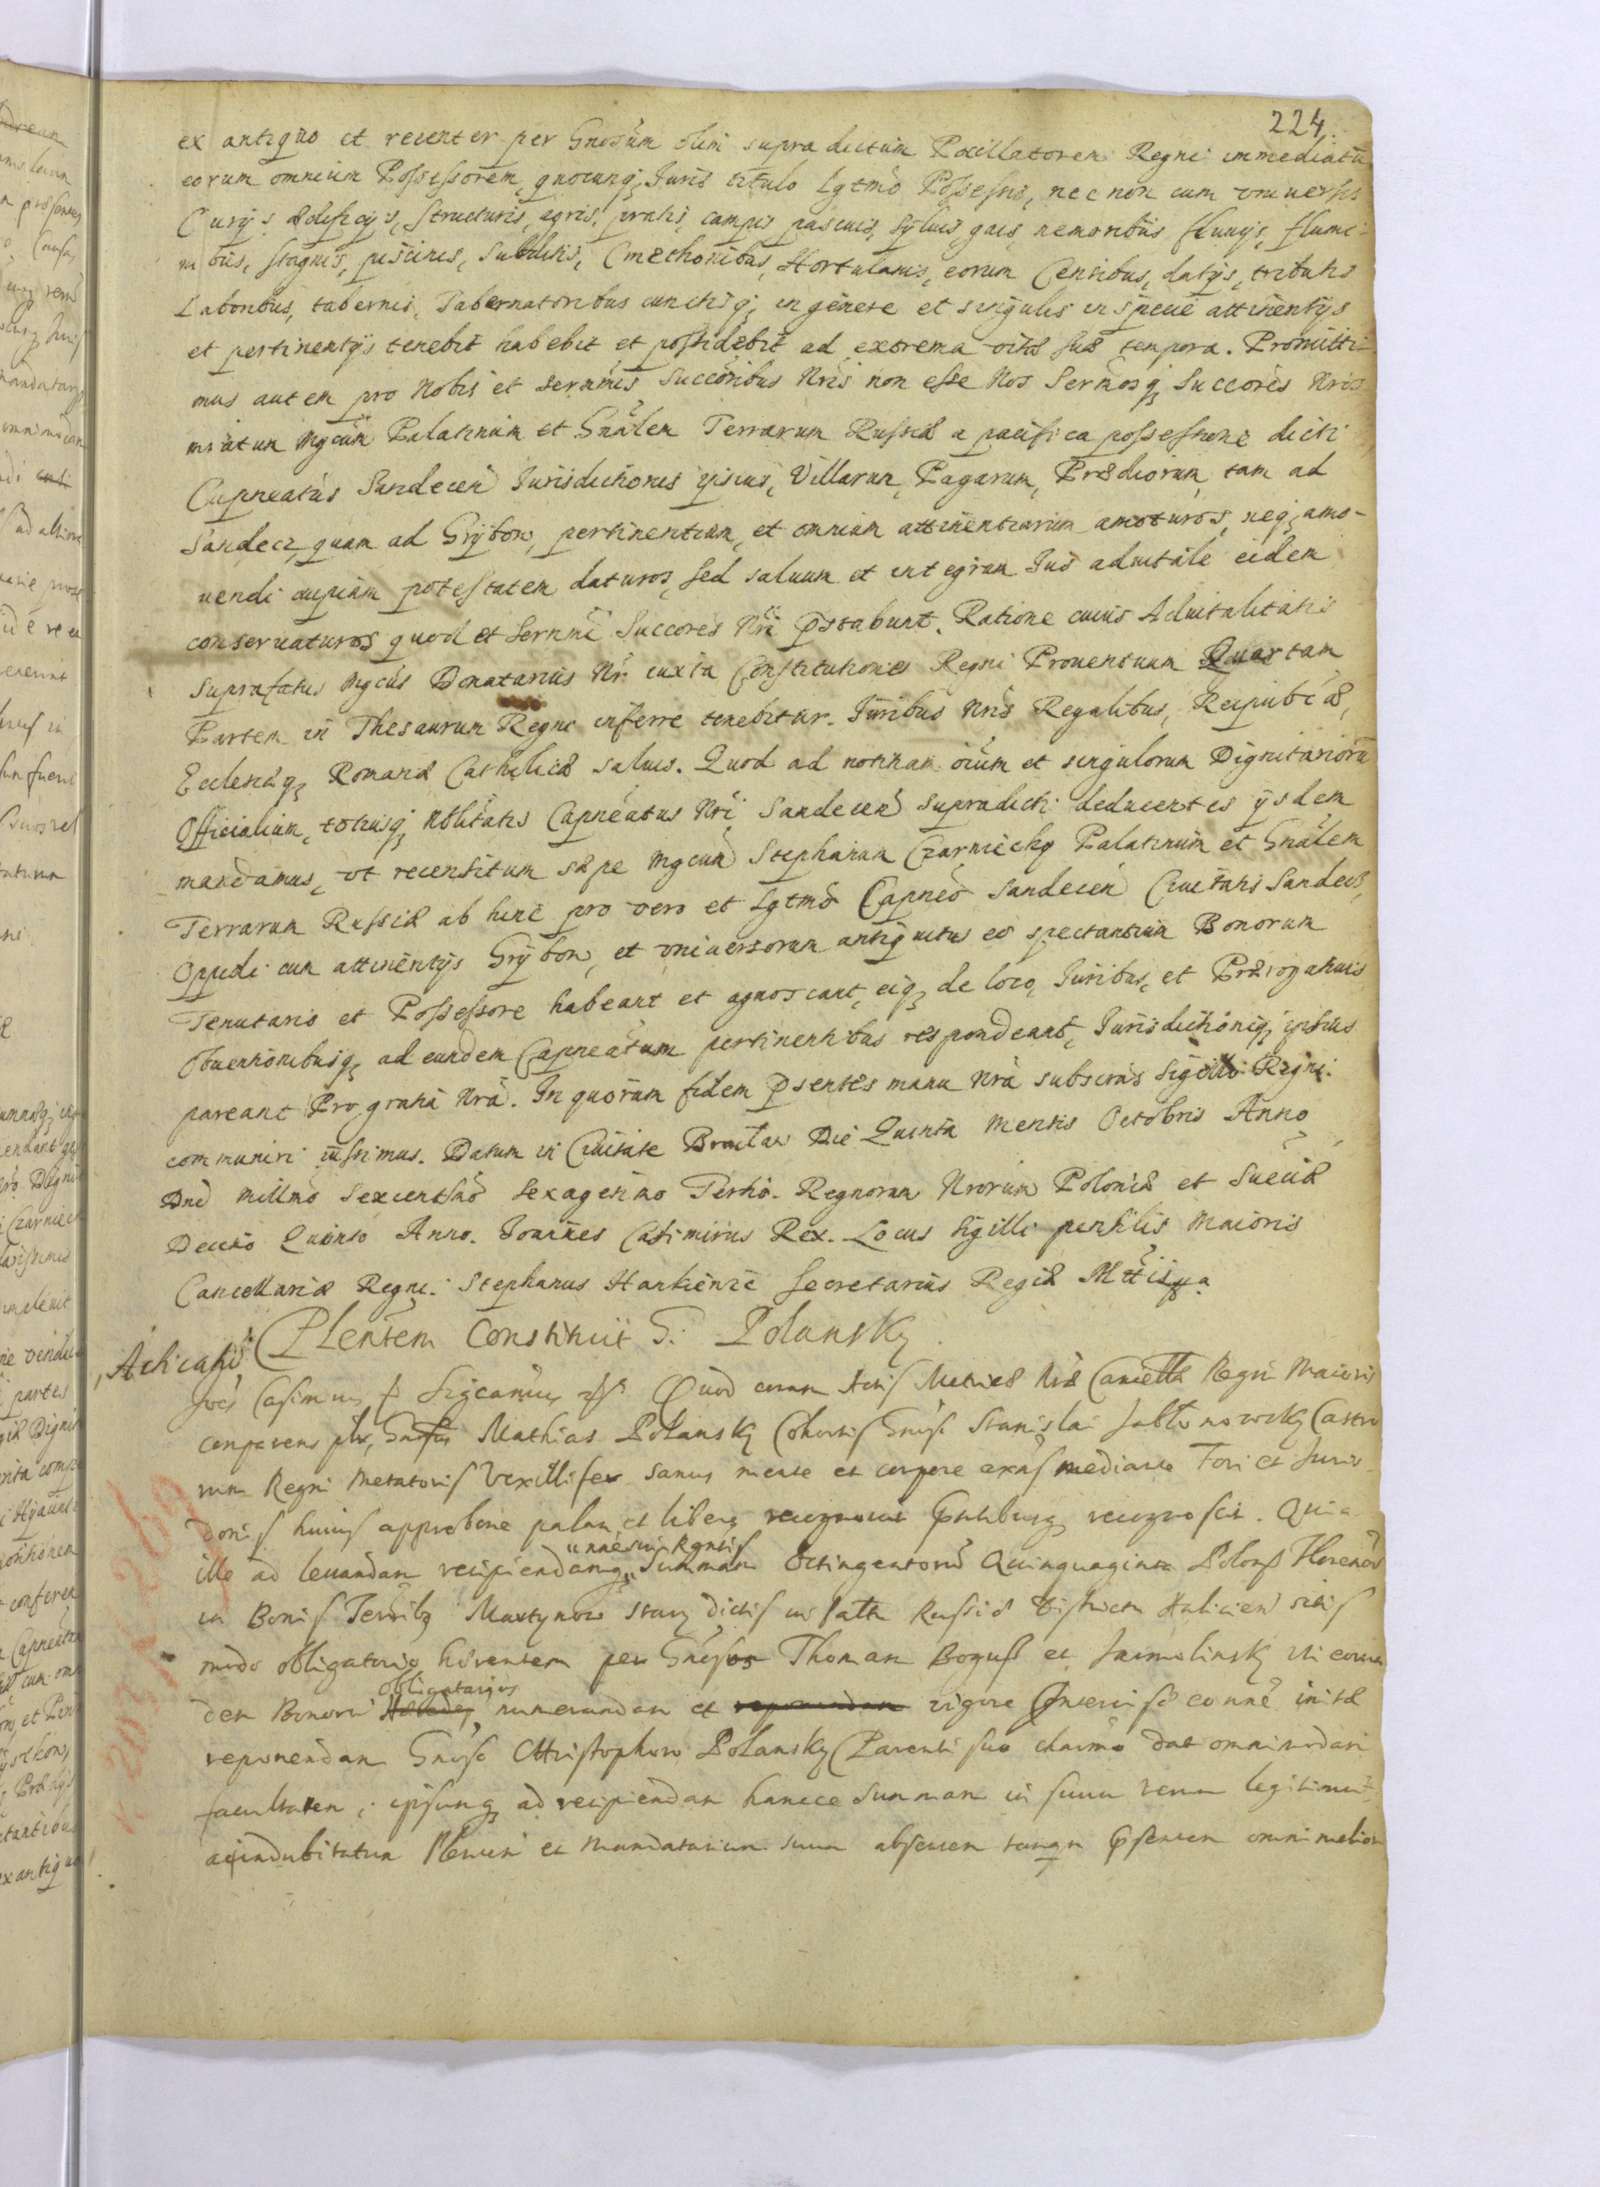 224.
ex antiquo et recenter per Gnosum olim supra dictum Pocillatorem Regni immediatū
eorum omnium Possessorem, quocunq; Juris titulo lgtmō Possessis, nec non cum universis
Curijs ædificijs, structuris, agris, pratis, campis pascuis, syluis gais, nemoribus fluuijs, flumi-
nibus, stagnis, piscinis, Subditis, Cmethonibus, Hortulanis, eorum Censibus, datijs, tributis
Laboribus, tabernis, Tabernatoribus cunctisq; in genere et singulis in specie attinentijs
et pertinentijs tenebit habebit et possidebit ad extrema vitæ suæ tempora. Promitti-
mus autem pro Nobis et Sernmis Succoribus Nris non esse Nos Sermosq; Succores Nros
mratum Mgcum Palatinum et Gnalem Terrarum Russiæ a pacifica possessione dicti
Capneatus Sandecen Jurisdictiones ipsius, Villarum, Pagarum, Prædiorum, tam ad
Sandecz, quam ad Grybow, pertinentium, et omnium attinentiarum amoturos, neq; amo-
uendi cupiam potestatem daturos, sed saluum et integrum Jus aduitale eidem
conseruaturos quod et Sernmi Succores Nri pstabunt. Ratione cuius Aduitalitatis
suprafatus Mgcus Donatarius Nr. iuxta Constitutiones Regni Prouentuum Quartam
Partem in Thesaurum Regni inferre tenebitur. Juribus Nris Regalibus, Reipubcæ,
Ecclesiæq; Romanæ Catholicæ saluis. Quod ad notitiam oium et singulorum Dignitarioru
Officialium, totiusq; Nblitatis Capneatus Nri Sandecen supradicti deducentes ijsdem
mandamus, vt recensitum sæpe Mgcum Stephanum Czarniecky Palatinum et Gnalem
Terrarum Russiæ ab hinc pro vero et lgtmo Capneo Sandecen Ciuitatis Sandecz,
Oppidi cum attinentijs Grybow, et vniuersorum antiquitus eo spectantium Bonorum
Tenutario et Possessore habeant et agnoscant, eiq; de loco, Juribus, et Prærogatiuis
Obuentionibusq; ad eundem Capneatum pertinentibus respondeant, Jurisdictioniq; ipsius
pareant Pro gratia Nra. In quorum fidem psentes manu Nra subscras Sigillo Regni
communiri iussimus. Datum in Ciuitate Braclaw Die Quinta Mensis Octobris Anno
Dni millmo Sexcentsmo Sexagesimo Tertio. Regnorum Nrorum Poloniæ et Sueciæ
Decimo Quinto Anno. Joannes Casimirus Rex. Locus Sigilli pensilis Maioris
Cancellariæ Regni. Stephanus Hankiewic Secretarius Regiæ Mttis
Plentem Constituit G. Polansky
Joes Casimirus Sigcamus Quod coram Actis Metricæ Nræ Cancellæ Regni Maioris
comparens plr, Gnosus Mathias Polansky Cohortis Gnosi Stanislai Jabłonowsky Castro
rum Regni Metatoris Vexillifer sanus mente et corpore exns mediante Fori et Juris
donis huius approbone palam, et libere recognouit pntibusq; recognoscit. Quia
ille ad leuandam recipiendamq; Summam Octingentoru Quinquaginta Polon Florenor
in Bonis Terribz Martynow Stary dictis in Pattu Russiæ Districtu Halicien sitis
modo obligatorio hærentem per Gnosos Thomam Boguss et Jarmolinsky in eorun
obligatarijs
dem Bonoru numerandam et vigore Interuisæ conne initæ
reponendam Gnoso Christophoro Polansky Parenti suo charmo dat omnimodam
facultatem, ipsumq; ad recipiendam hancce Summam in suum verum legitimū
acindubitatum Plenien et Mandatarium suum absentem tanqm psentem omni meliori